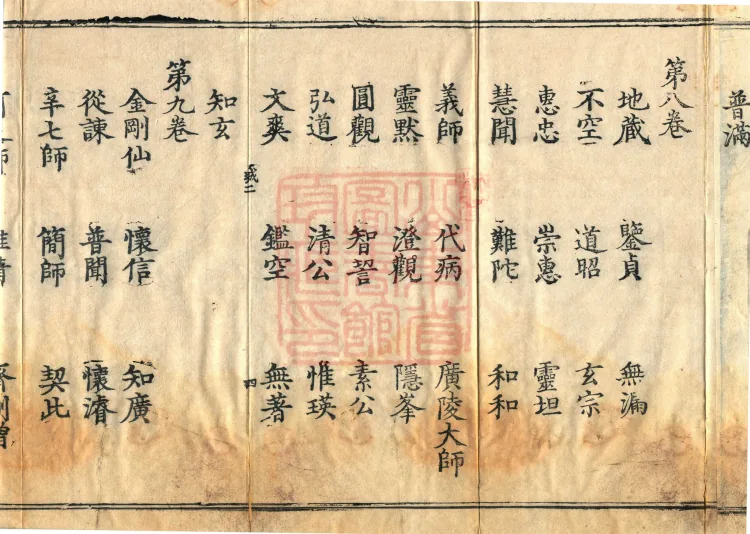 普滿
第八卷
地藏 鑒貞 無漏
不空 道昭 玄宗
惠忠 崇惠 靈坦
慧聞 難陀 和和
義師 代病 廣陵大師
靈默 澄觀 隱峯
圓觀 智䛒 素公
弘道 清公 惟瑛
文爽 鑑空 無著
知玄
第九卷
金剛仙 懷信 知廣
從諫 普聞 懷濬
辛七師 簡師 契此